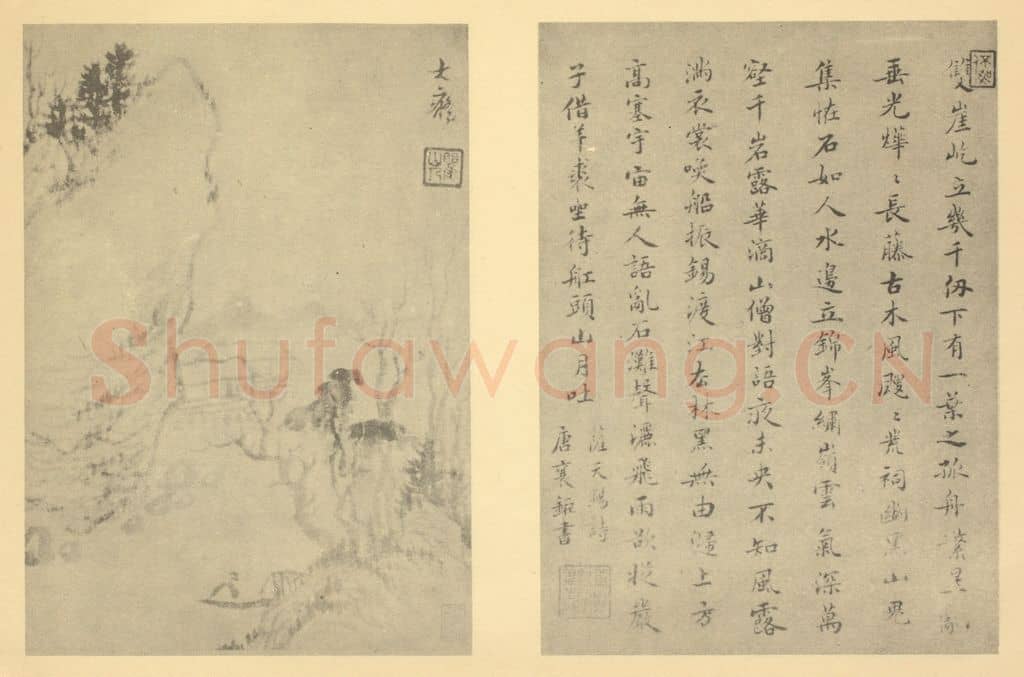 雙崖屹立幾千仞下有一葉之孤舟繁星亂
垂光燁々長藤古木風颼々荒祠幽黑山鬼
集怪石如人水邊立錦峯繡嶺雲氣深萬
壑千岩露華滴山僧對語夜未央不知風露
滿衣裳喚船振錫渡江去林黑無由歸上方
高寒宇宙無人語亂石灘聲灑飛雨欲從嚴
子借羊裘坐待舡頭山月吐
薩天錫詩
唐襄鉅書
大癡
Shufawang.CN